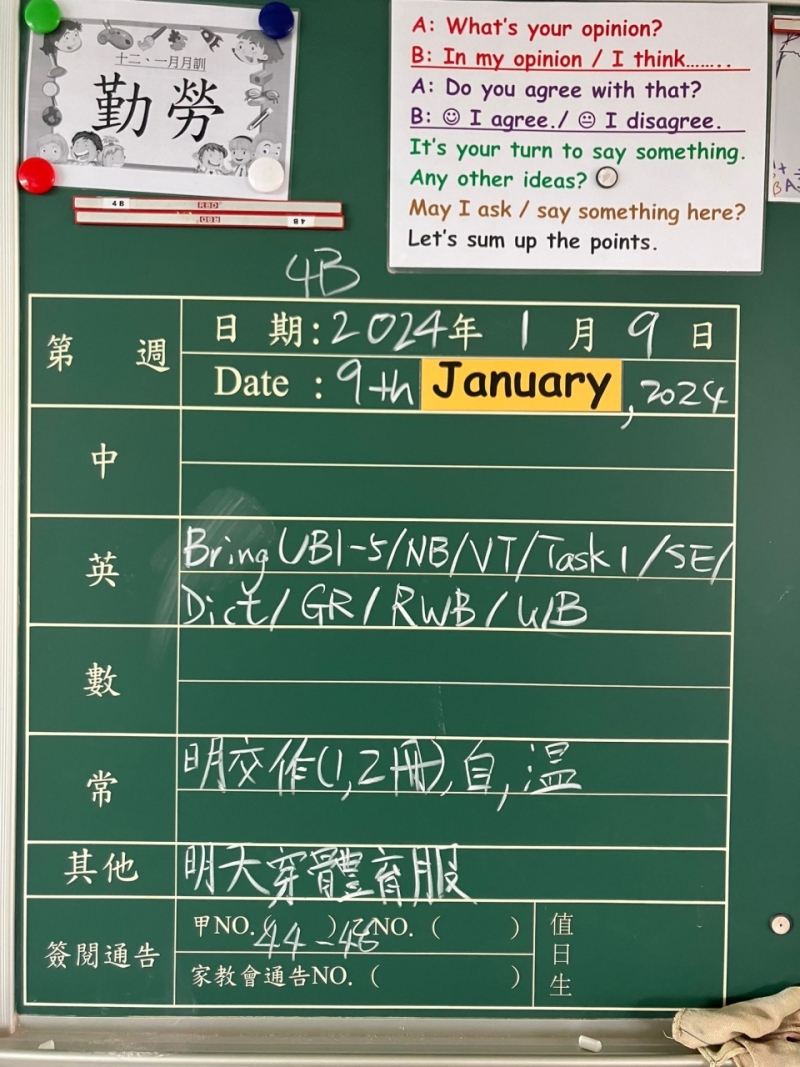 十二、一月月訓
勤勞
A: What's your opinion?
B: In my opinion / I think……..
A: Do you agree with that?
B: ☺ I agree./ 😐 I disagree.
It's your turn to say something.
Any other ideas?
May I ask / say something here?
Let's sum up the points.
4B RBD
RBD 4B
4B
第 週
日 期:2024年 1 月 9 日
Date : 9th January, 2024
中
英
Bring UB1-5/NB/VT/Task 1/SE/
Dict/GR/RWB/WB
數
常
明交作(1,2冊),自,溫
其他
明天穿體育服
簽閱通告
甲NO.(44-46) 乙NO. ( )
家教會通告NO. ( )
值日生